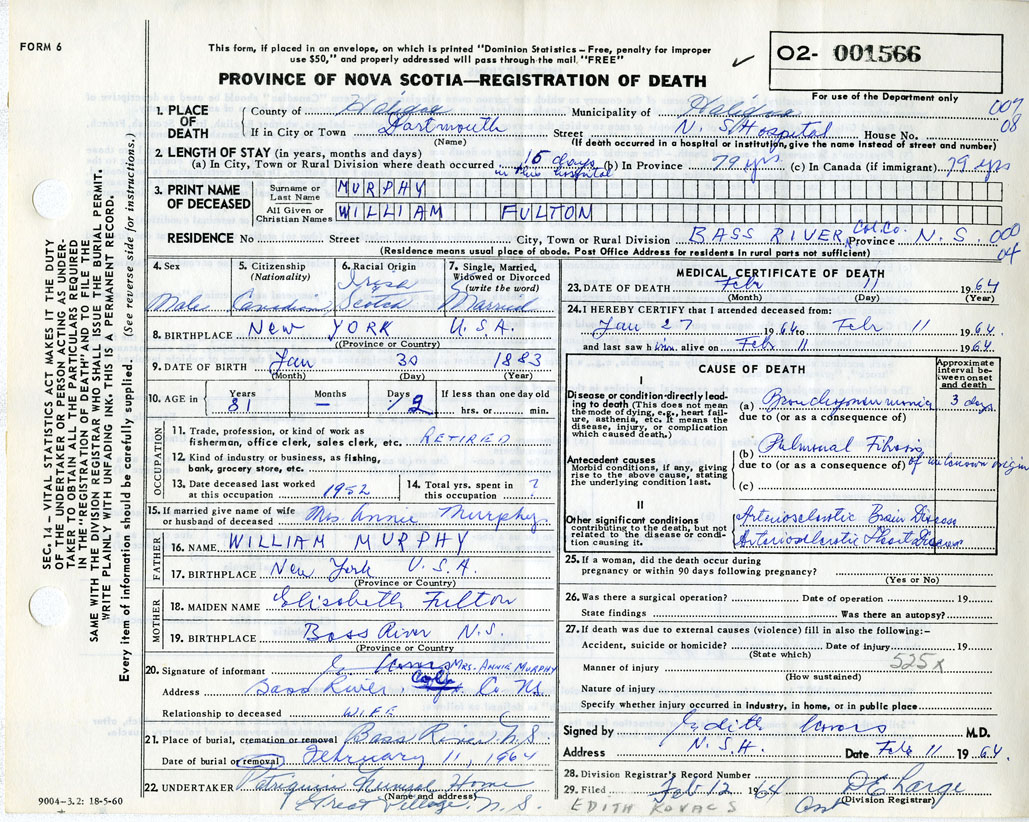 FORM 6
This form, if placed in an envelope, on which is printed "Dominion Statistics – Free, penalty for improper
use $50," and properly addressed will pass through the mail "FREE"
PROVINCE OF NOVA SCOTIA—REGISTRATION OF DEATH
✓
02- 001566
For use of the Department only
007
08
1. PLACE OF DEATH
County of Halifax Municipality of Halifax
If in City or Town Dartmouth Street N. S. Hospital House No.
(Name) (If death occurred in a hospital or institution, give the name instead of street and number)
2. LENGTH OF STAY (in years, months and days)
(a) In City, Town or Rural Division where death occurred 15 days in this hospital (b) In Province 79 yrs (c) In Canada (if immigrant) 79 yrs
3. PRINT NAME OF DECEASED
Surname or Last Name MURPHY
All Given or Christian Names WILLIAM FULTON
RESIDENCE No. Street City, Town or Rural Division BASS RIVER, Col. Co. Province N. S. 000
04
(Residence means usual place of abode. Post Office Address for residents in rural parts not sufficient)
4. Sex
Male
5. Citizenship (Nationality)
Canadian
6. Racial Origin
Irish Scotch
7. Single, Married, Widowed or Divorced (write the word)
Married
8. BIRTHPLACE New YORK U.S.A.
(Province or Country)
9. DATE OF BIRTH Jan 30 1883
(Month) (Day) (Year)
10. AGE in Years 81 Months – Days 12 If less than one day hrs. or min.
OCCUPATION
11. Trade, profession, or kind of work as
fisherman, office clerk, sales clerk, etc. RETIRED
12. Kind of industry or business, as fishing,
bank, grocery store, etc.
13. Date deceased last worked
at this occupation 1952
14. Total yrs. spent in
this occupation ?
15. If married give name of wife
or husband of deceased Mrs Annie Murphy.
FATHER
16. NAME WILLIAM MURPHY
17. BIRTHPLACE New York U.S.A.
(Province or Country)
MOTHER
18. MAIDEN NAME Elisabeth Fulton
19. BIRTHPLACE Bass River N.S.
(Province or Country)
20. Signature of informant MRS. ANNIE MURPHY
Address Bass River. Col. Co. N.S.
Relationship to deceased WIFE
21. Place of burial, cremation or removal Bass River N S
Date of burial or removal February 11, 1964
22. UNDERTAKER Patriquin Funeral Home
(Name and address)
Great Village, N. S.
9004–3.2: 18-5-60
MEDICAL CERTIFICATE OF DEATH
23. DATE OF DEATH Febr 11 1964
(Month) (Day) (Year)
24. I HEREBY CERTIFY that I attended deceased from:
Jan 27 1964 to Febr 11 1964
and last saw him alive on Febr 11 1964
CAUSE OF DEATH
Approximate interval between onset and death
I
Disease or condition directly leading to death (This does not mean the mode of dying, e.g., heart failure, asthenia, etc. It means the disease, injury, or complication which caused death.)
(a) Bronchopneumonia 3 days
due to (or as a consequence of)
Antecedent causes
Morbid conditions, if any, giving rise to the above cause, stating the underlying condition last.
(b) Pulmonal Fibrosis
due to (or as a consequence of) of unknown origin
(c)
II
Other significant conditions
contributing to the death, but not related to the disease or condition causing it.
Arteriosclerotic Brain Disease
Arteriosclerotic Heart Disease
25. If a woman, did the death occur during
pregnancy or within 90 days following pregnancy?
(Yes or No)
26. Was there a surgical operation? Date of operation 19
State findings Was there an autopsy?
27. If death was due to external causes (violence) fill in also the following:–
Accident, suicide or homicide? Date of injury 19
(State which)
525x
Manner of injury
(How sustained)
Nature of injury
Specify whether injury occurred in industry, in home, or in public place
Signed by Edith Kovacs M.D.
Address N. S. H. Date Feb 11 1964
28. Division Registrar's Record Number
29. Filed Feb 12 1964 D E Large
Asst (Division Registrar)
EDITH KOVACS
SEC. 14 – VITAL STATISTICS ACT MAKES IT THE DUTY
OF THE UNDERTAKER OR PERSON ACTING AS UNDER-
TAKER TO OBTAIN ALL THE PARTICULARS REQUIRED
IN THE "REGISTRATION OF DEATH" AND TO FILE THE
SAME WITH THE DIVISION REGISTRAR WHO SHALL ISSUE THE BURIAL PERMIT.
WRITE PLAINLY WITH UNFADING INK. THIS IS A PERMANENT RECORD.
Every item of information should be carefully supplied. (See reverse side for instructions.)